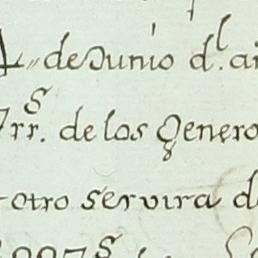 de Junio d.l a
rr.s de los Genero
otro servira d